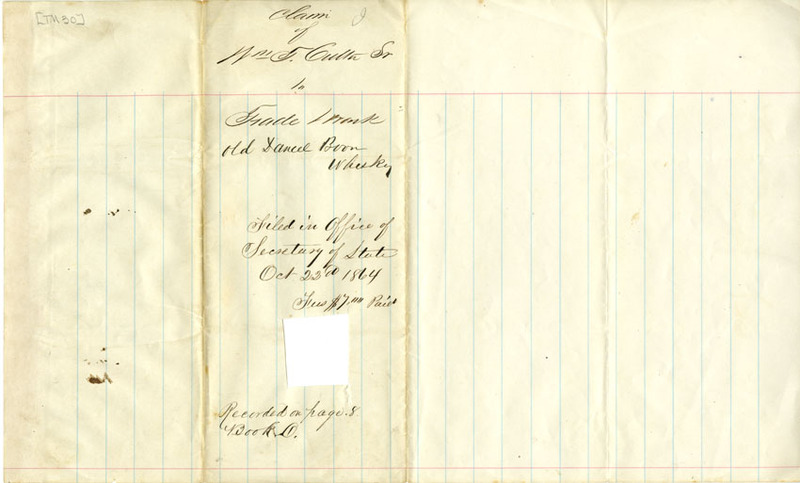 [TM 30]
Claim
of
Wm T. Cutter Sr
to
Trade Mark
Old Daniel Boon
Whisky
Filed in Office of
Secretary of State
Oct 22nd 1864
Fees $7.00 Paid
Recorded on page 8
Book D.